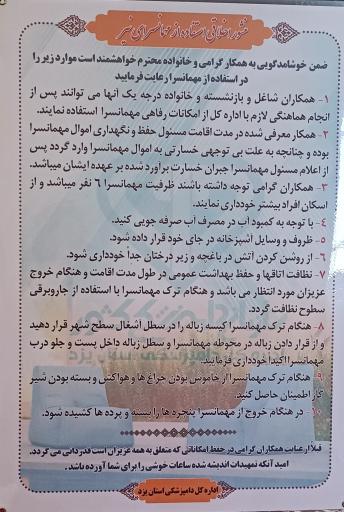 منشور اخلاقی استفاده از مهمانسرای نیر
ضمن خوشامدگویی به همکار گرامی و خانواده محترم خواهشمند است موارد زیر را
در استفاده از مهمانسرا رعایت فرمایید
۱- همکاران شاغل و بازنشسته و خانواده درجه یک آنها می توانند پس از
انجام هماهنگی لازم با اداره کل از امکانات رفاهی مهمانسرا استفاده نمایند.
۲- همکار معرفی شده در مدت اقامت مسئول حفظ و نگهداری اموال مهمانسرا
بوده و چنانچه به علت بی توجهی خسارتی به اموال مهمانسرا وارد گردد پس
از اعلام مسئول مهمانسرا جبران خسارت برآورد شده بر عهده ایشان میباشد.
۳- همکاران گرامی توجه داشته باشند ظرفیت مهمانسرا ۶ نفر میباشد و از
اسکان افراد بیشتر خودداری نمایند.
۴- با توجه به کمبود آب در مصرف آب صرفه جویی کنید.
۵- ظروف و وسایل آشپزخانه در جای خود قرار داده شود.
۶- از روشن کردن آتش در باغچه و زیر درختان جدا خودداری شود.
۷- نظافت اتاقها و حفظ بهداشت عمومی در طول مدت اقامت و هنگام خروج
عزیزان مورد انتظار می باشد و هنگام ترک مهمانسرا با استفاده از جاروبرقی
سطوح نظافت گردد.
۸- هنگام ترک مهمانسرا کیسه زباله را در سطل آشغال سطح شهر قرار دهید
و از قرار دادن زباله در محوطه مهمانسرا و سطل زباله داخل پست و جلو درب
مهمانسرا اکیدا خودداری فرمایید.
۹- هنگام ترک مهمانسرا از خاموش بودن چراغ ها و هواکش و بسته بودن شیر
گاز اطمینان حاصل کنید.
۱۰- در هنگام خروج از مهمانسرا پنجره ها را بسته و پرده ها کشیده شود.
قبلاً از عنایت همکاران گرامی در حفظ امکاناتی که متعلق به همه عزیزان است قدردانی می گردد.
امید آنکه تمهیدات اندیشه شده ساعات خوشی را برای شما آورده باشد.
اداره کل دامپزشکی استان یزد